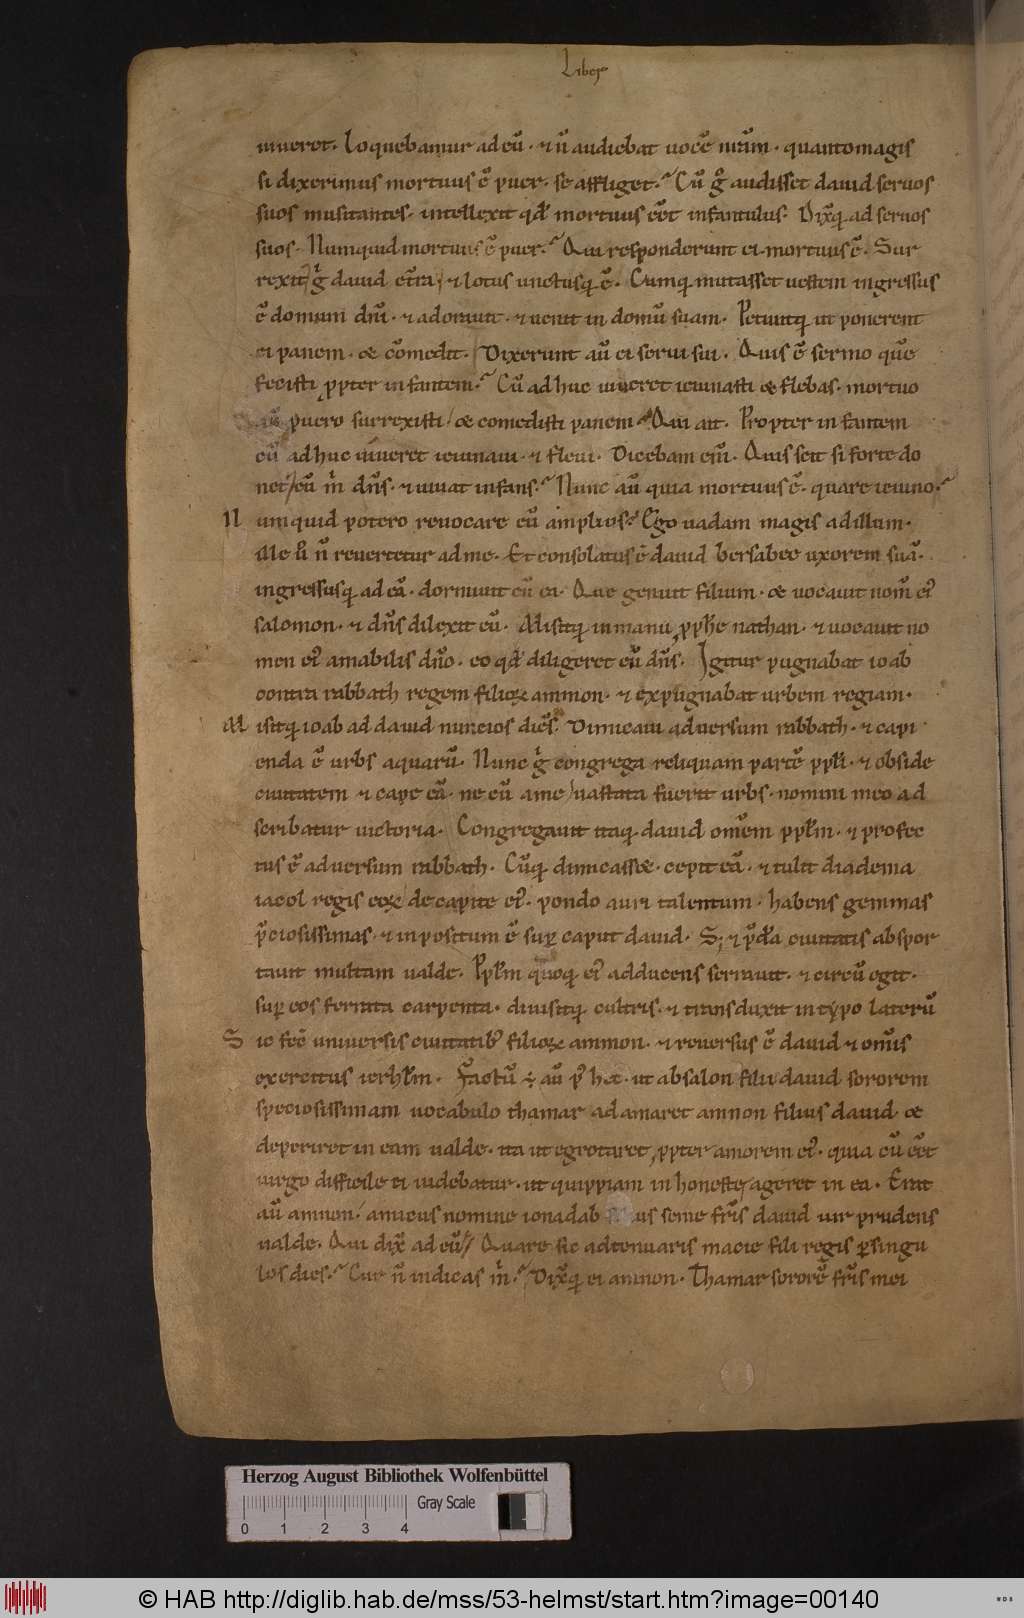 Liber
viveret. Loquebamur ad eū. ⁊ ñ audiebat vocē nr̄am. quanto magis
si dixerimus mortuus ē puer. se affliget. Cū g̊ audisset david servos
suos musitantes. intellexit qđ mortuus eēt infantulus. Dixq; ad servos
suos. Numquid mortuus ē puer. Qui responderunt ei mortuus ē. Sur
rexit g̊ david et̄ra. ⁊ lotus unctusq; ē. Cumq; mutasset vestem ingressus
ē domum dn̄i. ⁊ adoravit. ⁊ venit in domū suam. Petivitq; ut ponerent
ei panem. & cōmedit. Dixerunt aū ei servi sui. Quis ē sermo quē
fecisti ꝓpter infantem. Cū ad huc viveret ieiunasti & flebas. mortuo
aū puero surrexisti & comedisti panem. Qui ait. Propter infantem
cū ad huc viveret ieiunavi. ⁊ flevi. Dicebam em̄. Quis scit si forte do
net eū m̄ dn̄s. ⁊ vivat infans. Nunc aū quia mortuus ē. quare ieiuno.
Numquid potero revocare eū amplius. Ego vadam magis ad illum.
Ille v̄ ñ revertetur ad me. Et consolatus ē david bersabee uxorem suā.
ingressusq; ad eā. dormivit cū ea. Que genuit filium. & vocavit nom̄ ei᾽
salomon. ⁊ dn̄s dilexit eū. Misitq; in manu ꝓph̄e nathan. ⁊ vocavit no
men ei᾽ amabilis dn̄o. eo qđ diligeret eū dn̄s. Igitur pugnabat ioab
contra rabbath regem filioꝝ ammon. ⁊ expugnabat urbem regiam.
Misitq; ioab ad david nuncios dicēs. Dimicavi adversum rabbath. ⁊ capi
enda ē urbs aquarū. Nunc g̊ congrega reliquam partē ppl̄i. ⁊ obside
civitatem ⁊ cape eā. ne cū a me vastata fuerit urbs. nomini meo ad
scribatur victoria. Congregavit itaq; david omēm ppl̄m. ⁊ profec
tus ē adversum rabbath. Cūq; dimicass&. cepit eā. ⁊ tulit diadema
iacol regis eoꝝ de capite ei᾽. pondo auri talentum. habens gemmas
p̄ciosissimas. ⁊ inpositum ē suꝑ caput david. S; ⁊ p̄dā civitatis abspor
tavit multam valde. Ppl̄m quoq; ei᾽ adducens serravit. ⁊ circū egit.
suꝑ eos ferrata carpenta. divisitq; cultris. ⁊ transduxit in typo laterū
Sic fec̄ universis civitatib᾽ filioꝝ ammon. ⁊ reversus ē david ⁊ om̄is
exercitus ierhl̄m. Factū ÷ aū p᾽ hec. ut absalon filii david sororem
speciosissimam vocabulo thamar adamaret amnon filius david. &
deperiret in eam valde. ita ut egrotaret ꝓpter amorem ei᾽. quia cū eēt
virgo difficile ei videbatur. ut quippiam inhoneste ageret in ea. Erat
aū amnon amicus nomine ionadab filius seme fr̄is david vir prudens
valde. Qui dix̄ ad eū. Quare sic adtenuaris macie fili regis ꝑ singu
los dies. Cur ñ indicas m̄. Dixq; ei amnon. Thamar sororē fr̄is mei
Herzog August Bibliothek Wolfenbüttel
Gray Scale
0 1 2 3 4
© HAB http://diglib.hab.de/mss/53-helmst/start.htm?image=00140